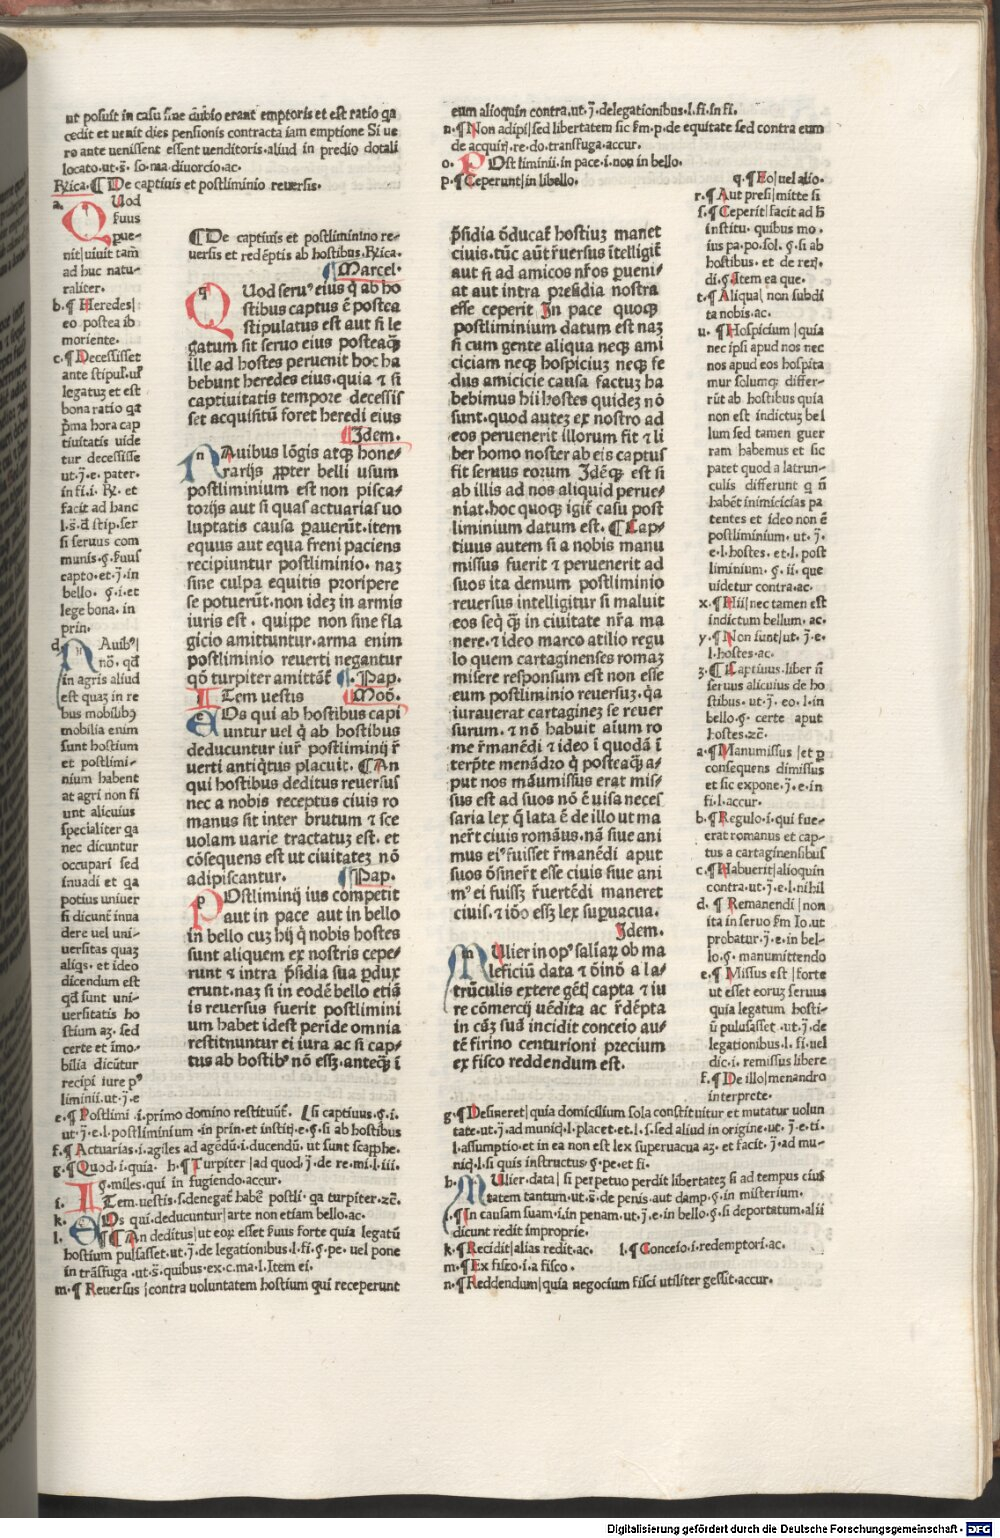 ut posuit in casu sine dubio erant emptoris et est ratio qa
cedit et uenit dies pensionis contracta iam emptione Si ue
ro ante uenissent essent uenditoris aliud in predio dotali
locato.ut.s. so.ma.diuorcio.ac.
Rica.¶ De captiuis et postliminio reuersis.
a. Quod
fuus
que-
nit|uiuit tam
ad huc natu-
raliter.
b.¶ Heredes|
eo postea ib
moriente.
c.¶ Decessisset
ante stipul.ul
legatuz et est
bona ratio qa
pma hora cap
tiuitatis uide
tur decessisse
ut.j.e. pater.
in fi.i. R. et
facit ad hanc
l.s.d stip.ser
si seruus com
munis.§.fuus
capto.et.j.in
bello. §.i.et
lege bona. in
prin.
d. Nauib9|
nō. qd
in agris aliud
est quaz in re
bus mobilib9
mobilia enim
sunt hostium
et postlimi-
nium habent
at agri non fi
unt alicuius
specialiter qa
nec dicuntur
occupari sed
inuadi et qa
potius uniuer
si dicunt inua
dere uel uni-
uersitas quaz
aliqs. et ideo
dicendum est
qd sunt uni-
uersitatis ho
stium az. sed
certe et imo-
bilia dicutur
recipi iure p9
liminii.ut.j.e
¶De captiuis et postliminino re-
uersis et redeptis ab hostibus.Rica.
¶Marcel.
QUod seru9 eius q ab ho
stibus captus e postea
stipulatus est aut si le
gatum sit seruo eius posteaq
ille ad hostes peruenit hoc ha
bebunt heredes eius.quia ⁊ si
captiuitatis tempore decessis
set acquisitu foret heredi eius
¶Idem.
NAuibus lōgis atq hone/
rarijs ppter belli usum
postliminium est non pisca/
torijs aut si quas actuarias uo
luptatis causa pauerut.item
equus aut equa freni paciens
recipiuntur postliminio. naz
sine culpa equitis proripere
se potuerut.non idez in armis
iuris est. quipe non sine fla
gicio amittuntur.arma enim
postliminio reuerti negantur
qō turpiter amittat ¶.Pap.
ITem uestis ¶Mod.
EOs qui ab hostibus capi
untur uel q ab hostibus
deducuntur iur postliminij r
uerti antiqtus placuit. ¶An
qui hostibus deditus reuersus
nec a nobis receptus ciuis ro
manus sit inter brutum ⁊ sce
uolam varie tractatuz est. et
cōsequens est ut ciuitatez nō
adipiscantur. ¶Pap.
POstliminij ius competit
aut in pace aut in bello
in bello cuz hij q nobis hostes
sunt aliquem ex nostris cepe/
runt ⁊ intra psidia sua pdux
erunt.naz si in eodē bello etiā
is reuersus fuerit postlimini
um habet idest peride omnia
restitnuntur ei iura ac si cap/
tus ab hostib9 nō essz.anteq i
e.¶ Postlimi.i.primo domino restituut. l si captiuus.§.i.
ut.j.e.l.postliminium.in prin.et instit.e.§.si ab hostibus
f.¶ Actuarias.i.agiles ad agedu.i.ducendu. ut sunt scapphe.
g.¶Quod.i.quia. h.¶Turpiter|ad quod.j.de re.mi.l.iii.
§.miles.qui in fugiendo.accur.
i. ITem.uestis.s.denegat habe postli.qa turpiter.zc.
k. EOs qui.deducuntur|arte non etiam bello.ac.
l. ¶An deditus|ut eor esset fuus forte quia legatu
hostium pulsasset.ut.j.de legationibus.l.fi.§.pe.uel pone
in trāsfuga.ut.s.quibus.ex.c.ma.l.Item ei.
m.¶ Reuersus|contra uoluntatem hostium qui receperunt
eum alioquin contra.ut.j.delegationibus.l.fi.in fi.
n.¶Non adipi|sed libertatem sic fm.p.de equitate sed contra eum
de acquir.re.do.transfuga.accur.
o. POst liminii.in pace.i.non in bello.
p.¶Ceperunt|in libello.
psidia ōducat hostiuz manet
ciuis.tūc aut ruersus ītelligit
aut si ad amicos nros pueni/
at aut intra presidia nostra
esse ceperit In pace quoq
postliminium datum est naz
si cum gente aliqua neq ami
ciciam neq hospiciuz neq fe
dus amicicie causa factuz ha
bebimus hii hostes quidez nō
sunt.quod autez ex nostro ad
eos peruenerit illorum fit ⁊ li
ber homo noster ab eis captus
fit seruus eorum Idēq est si
ab illis ad nos aliquid perue/
niat.hoc quoq igit casu post
liminium datum est. ¶Cap/
tiuus autem si a nobis manu
missus fuerit ⁊ peruenerit ad
suos ita demum postliminio
reuersus intelligitur si maluit
eos seq q in ciuitate nra ma
nere.⁊ ideo marco atilio regu
lo quem cartaginenses romaz
misere responsum est non esse
eum postliminio reuersuz.qa
iurauerat cartaginez se reuer
surum.⁊ nō habuit aīum ro
me rmanēdi ⁊ ideo i quodā i
terpte menādro q posteaq a/
put nos māumissus erat mis/
sus est ad suos nō ē uisa neces
saria lex q lata ē de illo ut ma
neret ciuis romānus.nā siue ani
mus ei9 fuisset rmanēdi aput
suos ōsineret esse ciuis siue ani
m9 ei fuissz rruertēdi maneret
ciuis.⁊ iōo essz lex supuacua.
Idem.
MUlier in op9 saliar ob ma
leficiū data ⁊ ōinō a la/
trūculis extere gētj capta ⁊ iu
re cōmercij uēdita ac rdēpta
in cāz suā incidit conceio au/
tē firino centurioni precium
ex fisco reddendum est.
q.¶Eo|uel alio.
r.¶Aut presi|mitte si
s.¶Ceperit|facit ad h
institu. quibus mo.
ius pa.po.sol. §.si ab
hostibus. et de rer.
di.§.Item ea que.
t.¶Aliqua| non subdi
ta nobis.ac.
u. ¶Hospicium|quia
nec ipsi apud nos nec
nos apud eos hospita
mur solumq differ-
rūt ab hostibus quia
non est indictuz bel
lum sed tamen guer
ram habemus et sic
patet quod a latrun-
culis differunt q n
habet inimicicias pa
tentes et ideo non ē
postliminium. ut. j.
e.l.hostes. et.l. post
liminium. §. ii. que
uidetur contra.ac.
x.¶Hii|nec tamen est
indictum bellum. ac.
y.¶Non sunt|ut.j.e.
l.hostes.ac.
z.¶Captiuus.liber n
seruus alicuius de ho
stibus. ut.j. eo. l.in
bello.§. certe aput
hostes.zc.
a.¶Manumissus |et p
consequens dimissus
et sic expone.j.e.in
fi.l.accur.
b.¶Regulo.i.qui fue-
erat romanus et cap-
tus a cartaginensibus
c.¶Habuerit|alioquin
contra.ut.j.e.l.nihil
d. ¶ Remanendi | non
ita in seruo fm Io.ut
probatur.j.e.in bel-
lo.§.manumittendo
e.¶Missus est |forte
ut esset eoruz seruus
quia legatum hosti-
ū pulusasset .ut.j.de
legationibus.l. fi.uel
dic.i. remissus libere
f.¶De illo|menandro
interprete.
g.¶Desineret|quia domicilium sola constituitur et mutatur uolun
tate.ut.j.ad municj.l.placet.et.l.j.sed aliud in origine.ut.j.e.ti.
l.assumptio.et in ea non est lex superuacua az.et facit.j.ad mu-
nicj.l.si quis instructus.§.pe.et fi.
h. MUlier.data| si perpetuo perdit libertatez si ad tempus ciui9
tatem tantum.ut.s.de penis.aut damp.§.in misterium.
i.¶In causam suam.i.in penam.ut.j.e.in bello.§.si deportatum.alii
dicunt redit improprie.
k.¶Recidit|alias redit.ac. l.¶Conceio.i.redemptori.ac.
m.¶Ex fisco.i.a fisco.
n.¶Reddendum|quia negocium fisci utiliter gessit.accur.
Digitalisierung gefördert durch die Deutsche Forschungsgemeinschaft - DFG